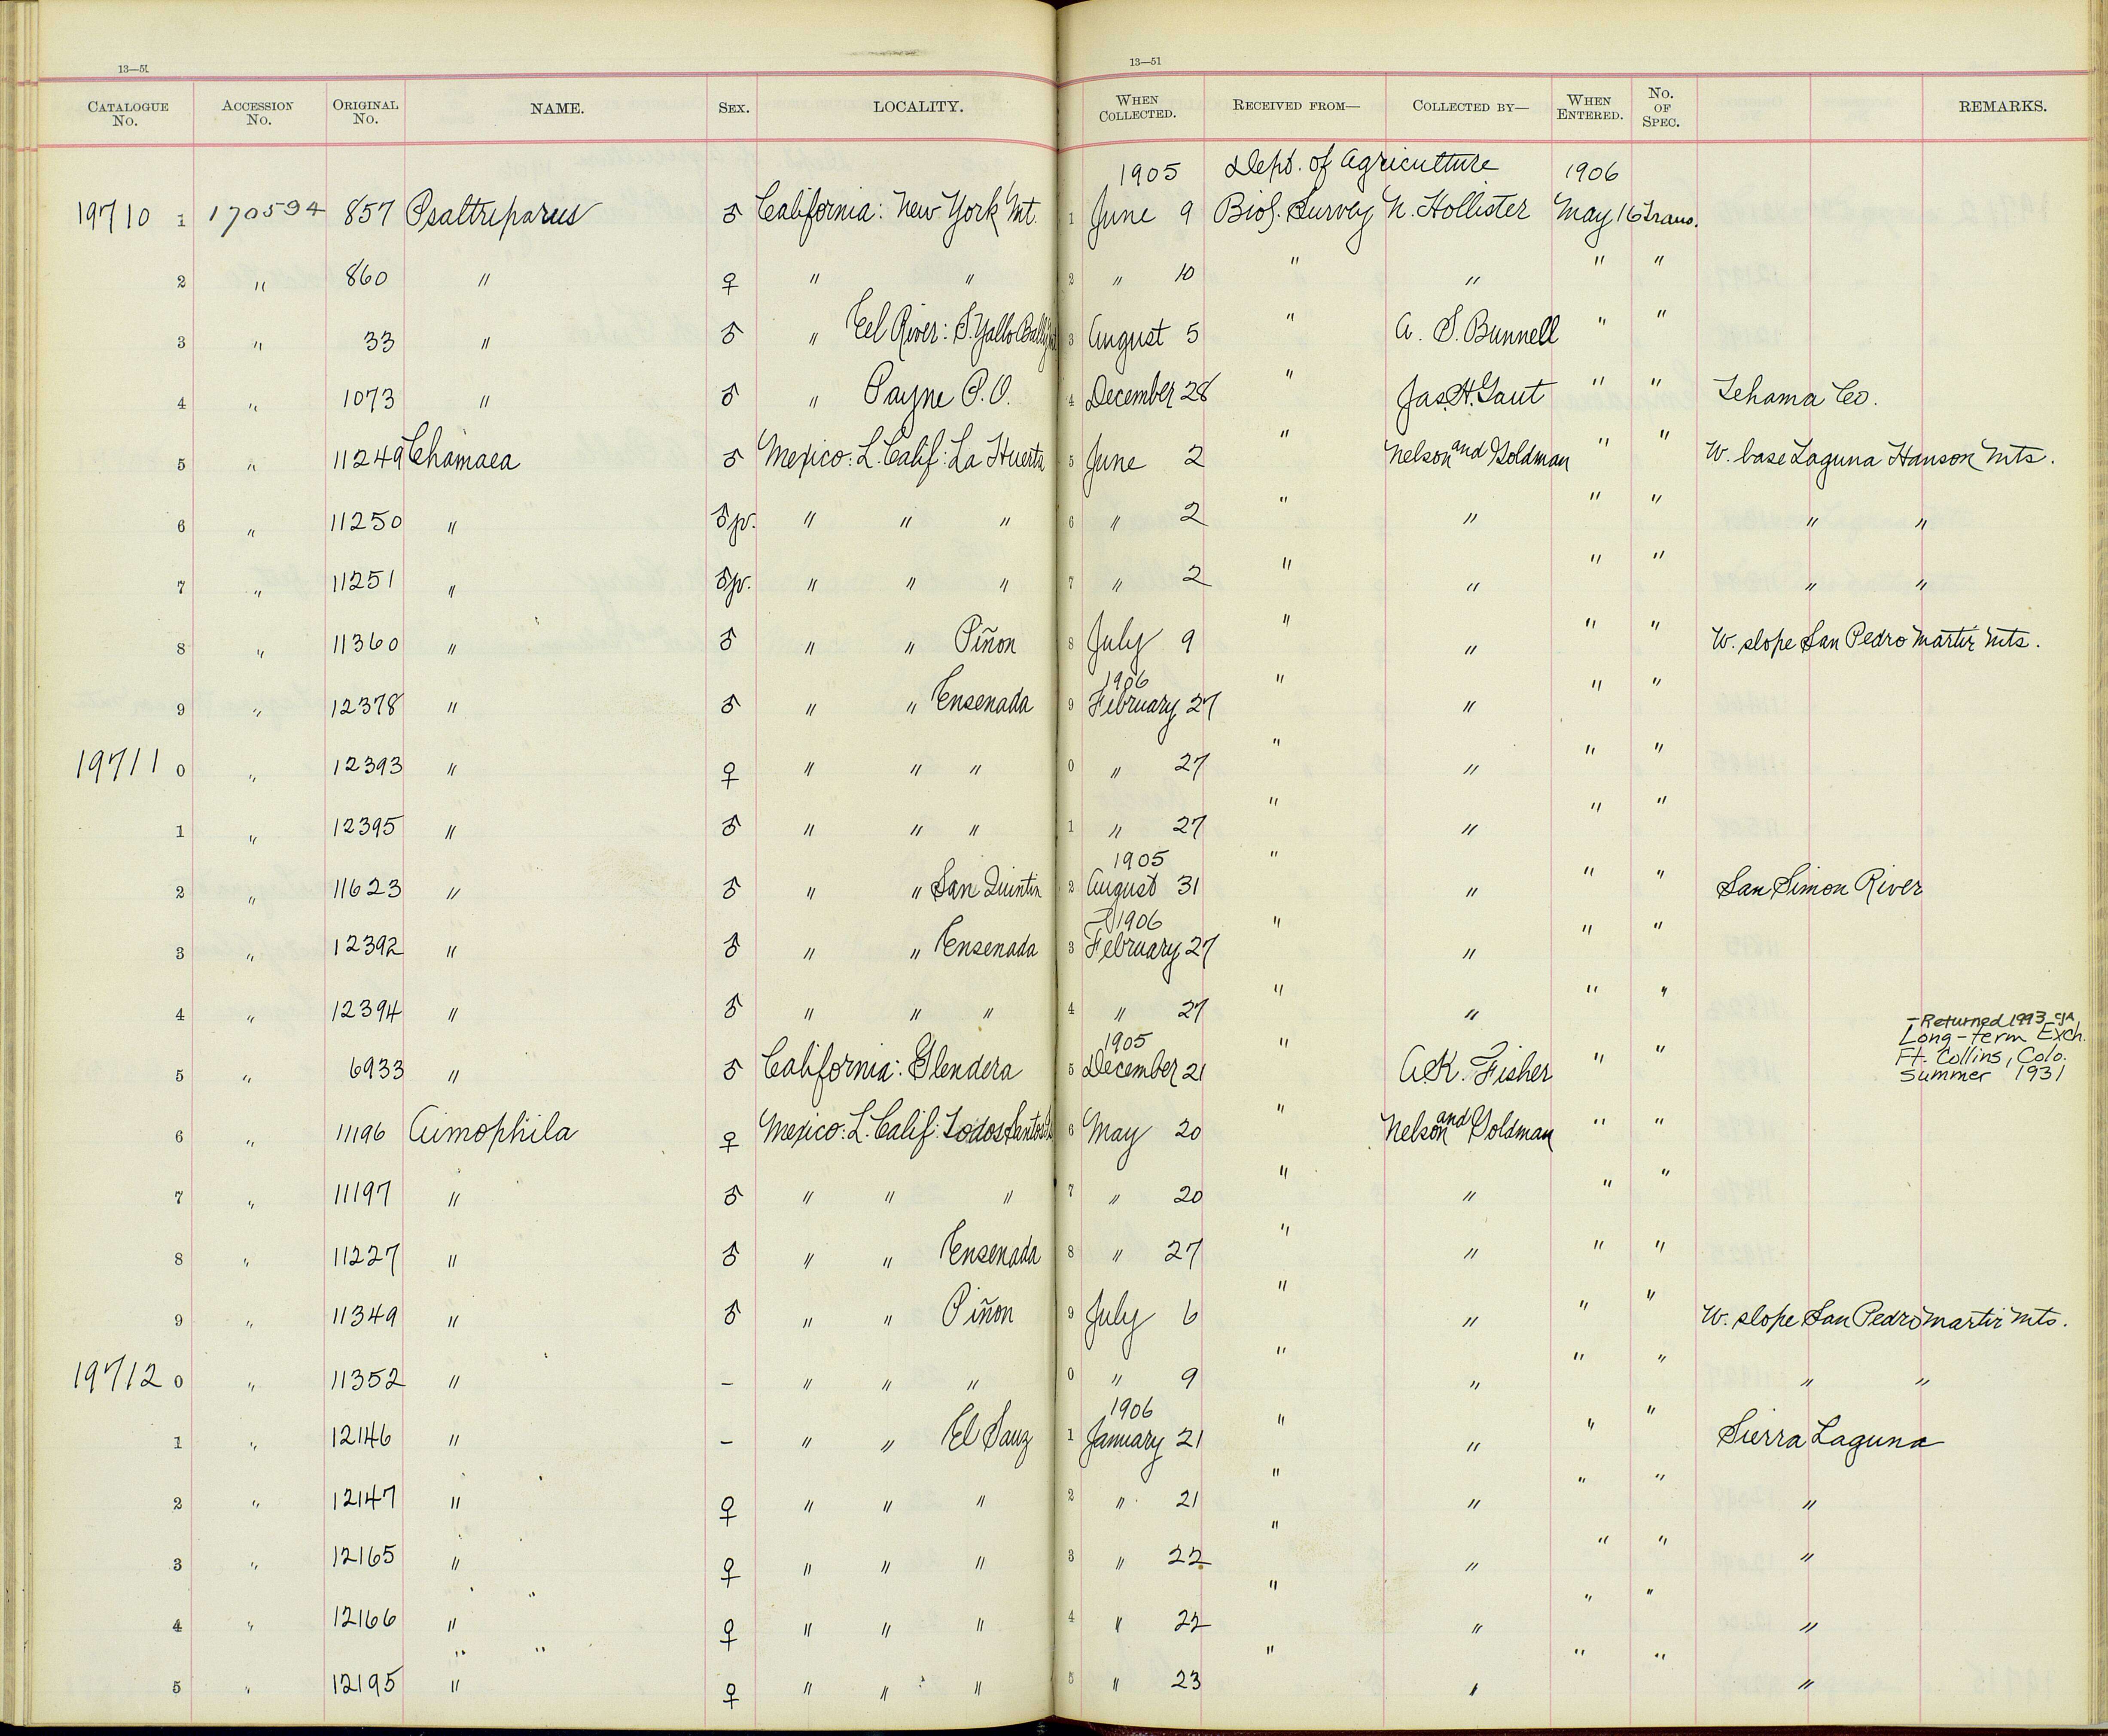 13—51 13—51
CATALOGUE No. ACCESSION No. ORIGINAL No. NAME. SEX. LOCALITY. WHEN COLLECTED. RECEIVED FROM— COLLECTED BY— WHEN ENTERED. No. OF SPEC. REMARKS.
1905 Dept. of Agriculture 1906
19710 1 170594 857 Psaltriparus ♂ California: New York Mt. 1 June 9 Biol. Survey N. Hollister May 16 Trans.
2 " 860 " ♀ " " 2 " 10 " " " "
3 " 33 " ♂ " Eel River: S. Yallo Bally 3 August 5 " A. S. Bunnell " "
4 " 1073 " ♂ " Payne P.O. 4 December 28 " Jas. H. Gaut " " Tehama Co.
5 " 11249 Chamaea ♂ Mexico: L. Calif: La Huerta 5 June 2 " Nelson and Goldman " " W. base Laguna Hanson Mts.
6 " 11250 " ♂ jv. " " " 6 " 2 " " " " " "
7 " 11251 " ♂ jv. " " " 7 " 2 " " " " " "
8 " 11360 " ♂ " " Piñon 8 July 9 " " " " W. slope San Pedro Martir Mts.
1906
9 " 12378 " ♂ " " Ensenada 9 February 27 " " " "
19711 0 " 12393 " ♀ " " " 0 " 27 " " " "
1 " 12395 " ♂ " " " 1 " 27 " " " "
1905
2 " 11623 " ♂ " " San Quintin 2 August 31 " " " " San Simon River
1906
3 " 12392 " ♂ " " Ensenada 3 February 27 " " " "
4 " 12394 " ♂ " " " 4 " 27 " " " "
1905
5 " 6933 " ♂ California: Glendera 5 December 21 " A.K. Fisher " "
—Returned 1993 CJA
Long-term Exch.
Ft. Collins, Colo.
Summer 1931
6 " 11196 Aimophila ♀ Mexico: L. Calif: Todos Santos 6 May 20 " Nelson and Goldman " "
7 " 11197 " ♂ " " " 7 " 20 " " " "
8 " 11227 " ♂ " " Ensenada 8 " 27 " " " "
9 " 11349 " ♂ " " Piñon 9 July 6 " " " " W. slope San Pedro Martir Mts.
19712 0 " 11352 " – " " " 0 " 9 " " " " " "
1906
1 " 12146 " – " " El Sauz 1 January 21 " " " " Sierra Laguna
2 " 12147 " ♀ " " " 2 " 21 " " " " "
3 " 12165 " ♀ " " " 3 " 22 " " " " "
4 " 12166 " ♀ " " " 4 " 22 " " " " "
5 " 12195 " ♀ " " " 5 " 23 " " " " "